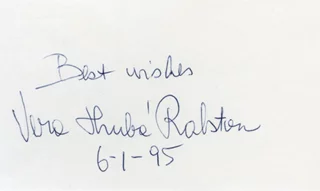 Best wishes
Vera Hruba Ralston
6-1-95